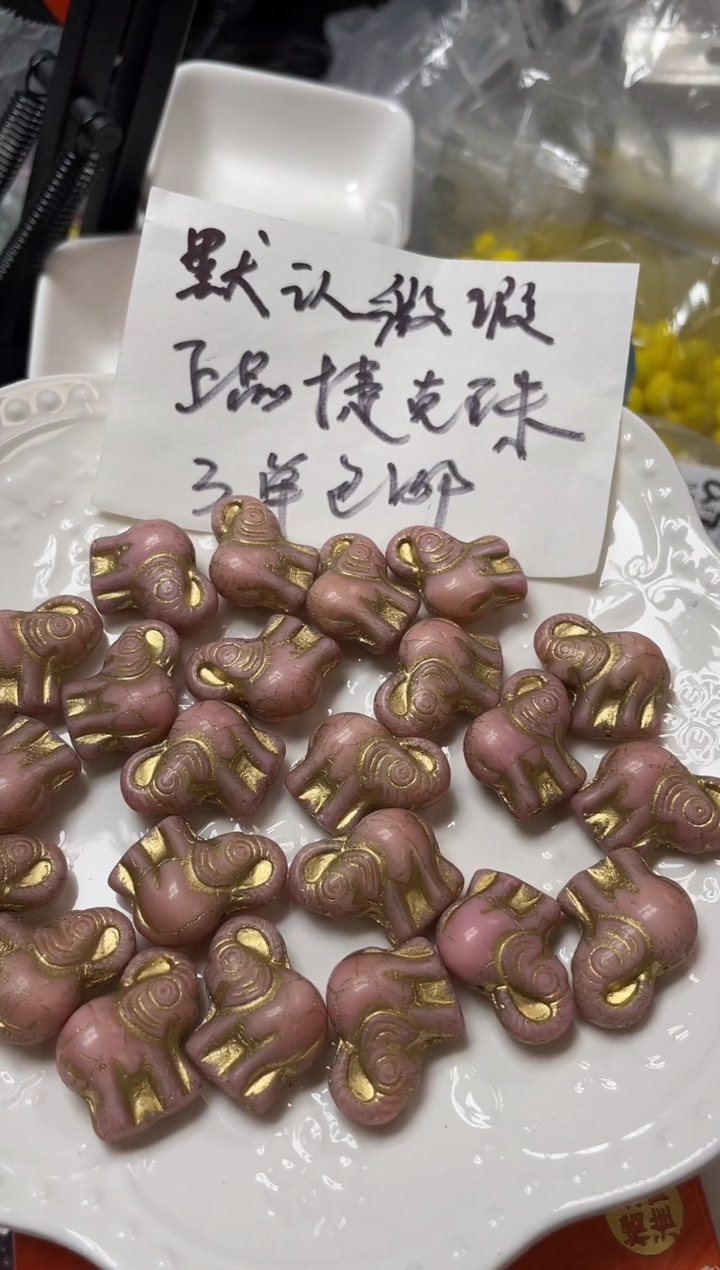 默认微瑕
正品捷克珠
3单包邮